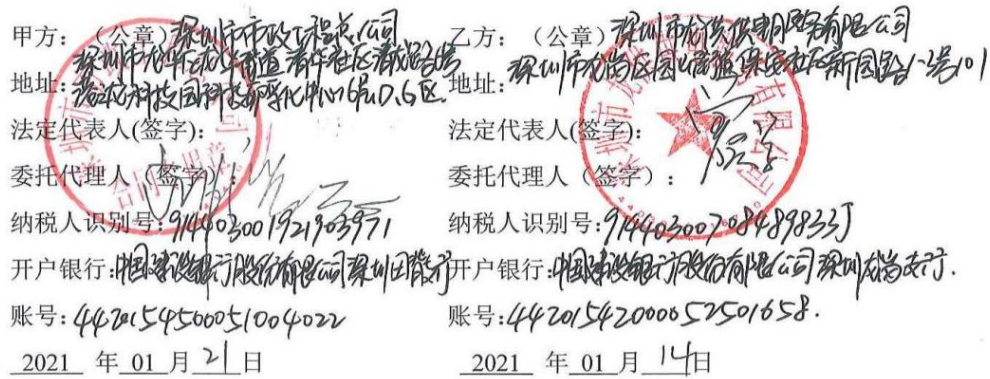 甲方：（公章）深圳市市政工程总公司
地址：深圳市龙华区龙华街道清华社区清龙路6号
港之龙科技园科技孵化中心6层D、G区
法定代表人(签字)：
委托代理人（签字）：
纳税人识别号：914403001921903971
开户银行：中国建设银行股份有限公司深圳田背支行
账号：44201545000051004022
2021 年 01 月 21 日
乙方：（公章）深圳市龙供供电服务有限公司
地址：深圳市龙岗区园山街道保安社区新园路1-3号101
法定代表人(签字)：
委托代理人（签字）：
纳税人识别号：91440300708489833J
开户银行：中国建设银行股份有限公司深圳龙岗支行.
账号：44201542000052501658.
2021 年 01 月 14日